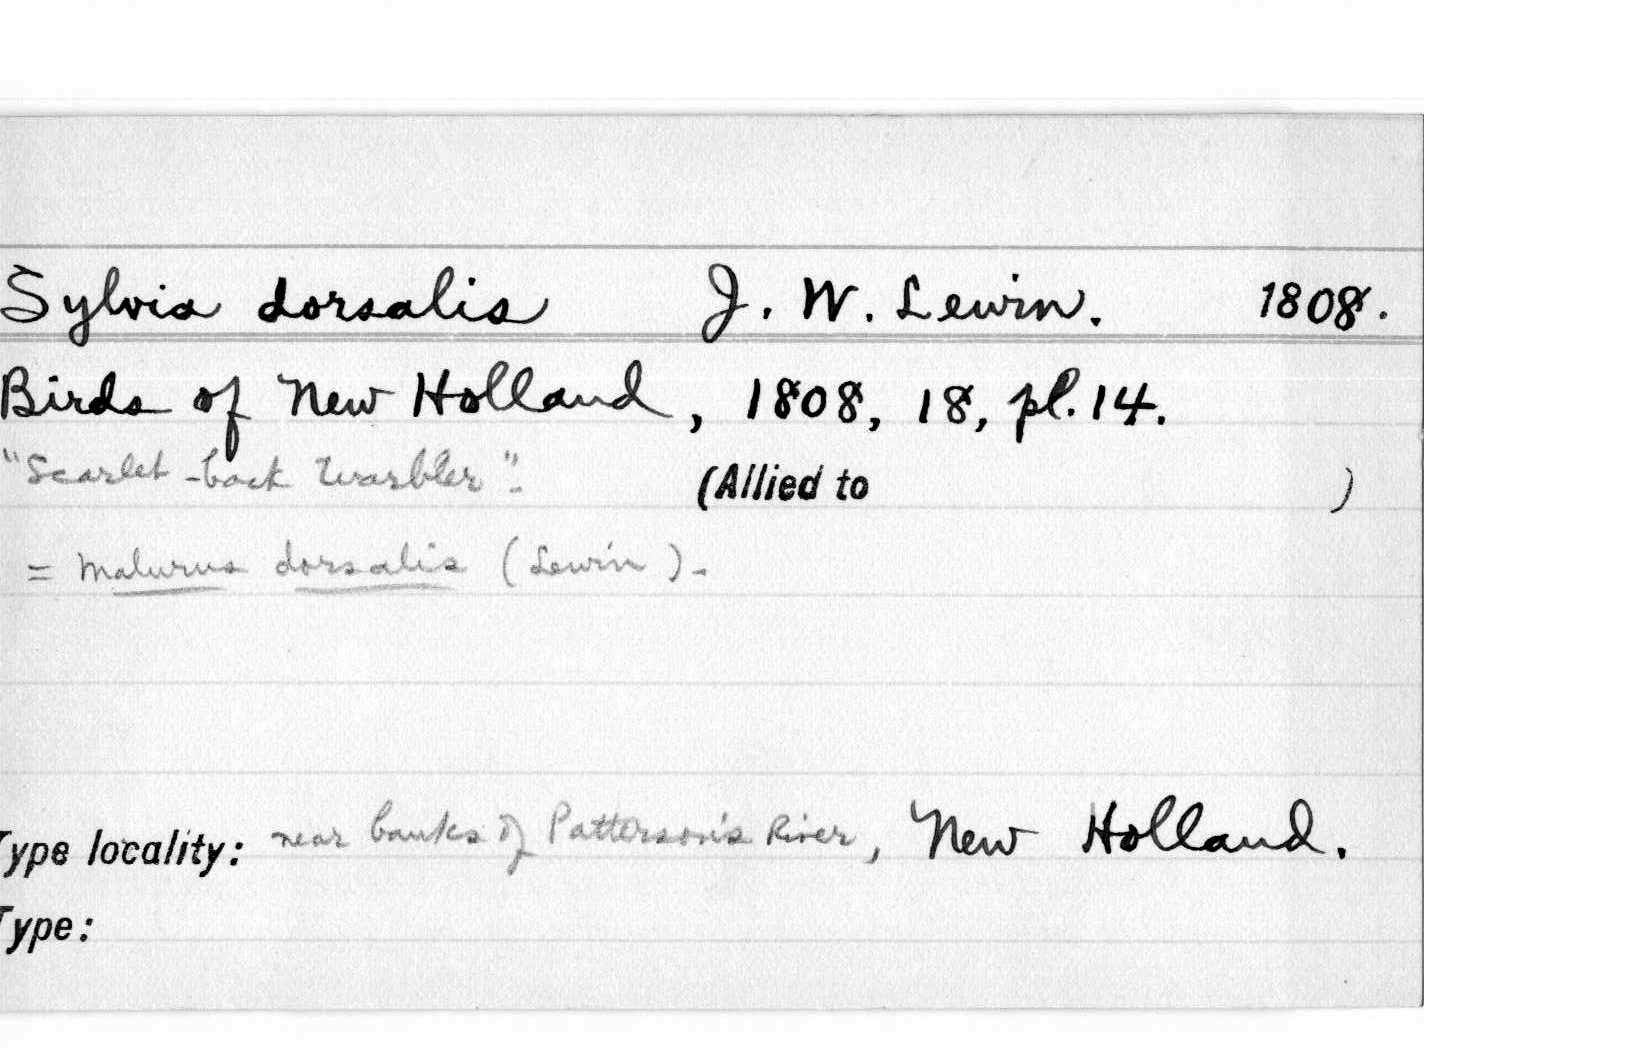 Sylvia dorsalis J. W. Lewin. 1808.
Birds of New Holland, 1808, 18, pl. 14.
"Scarlet-back Warbler". (Allied to )
= Malurus dorsalis (Lewin).
Type locality: near banks of Patterson's River, New Holland.
Type: